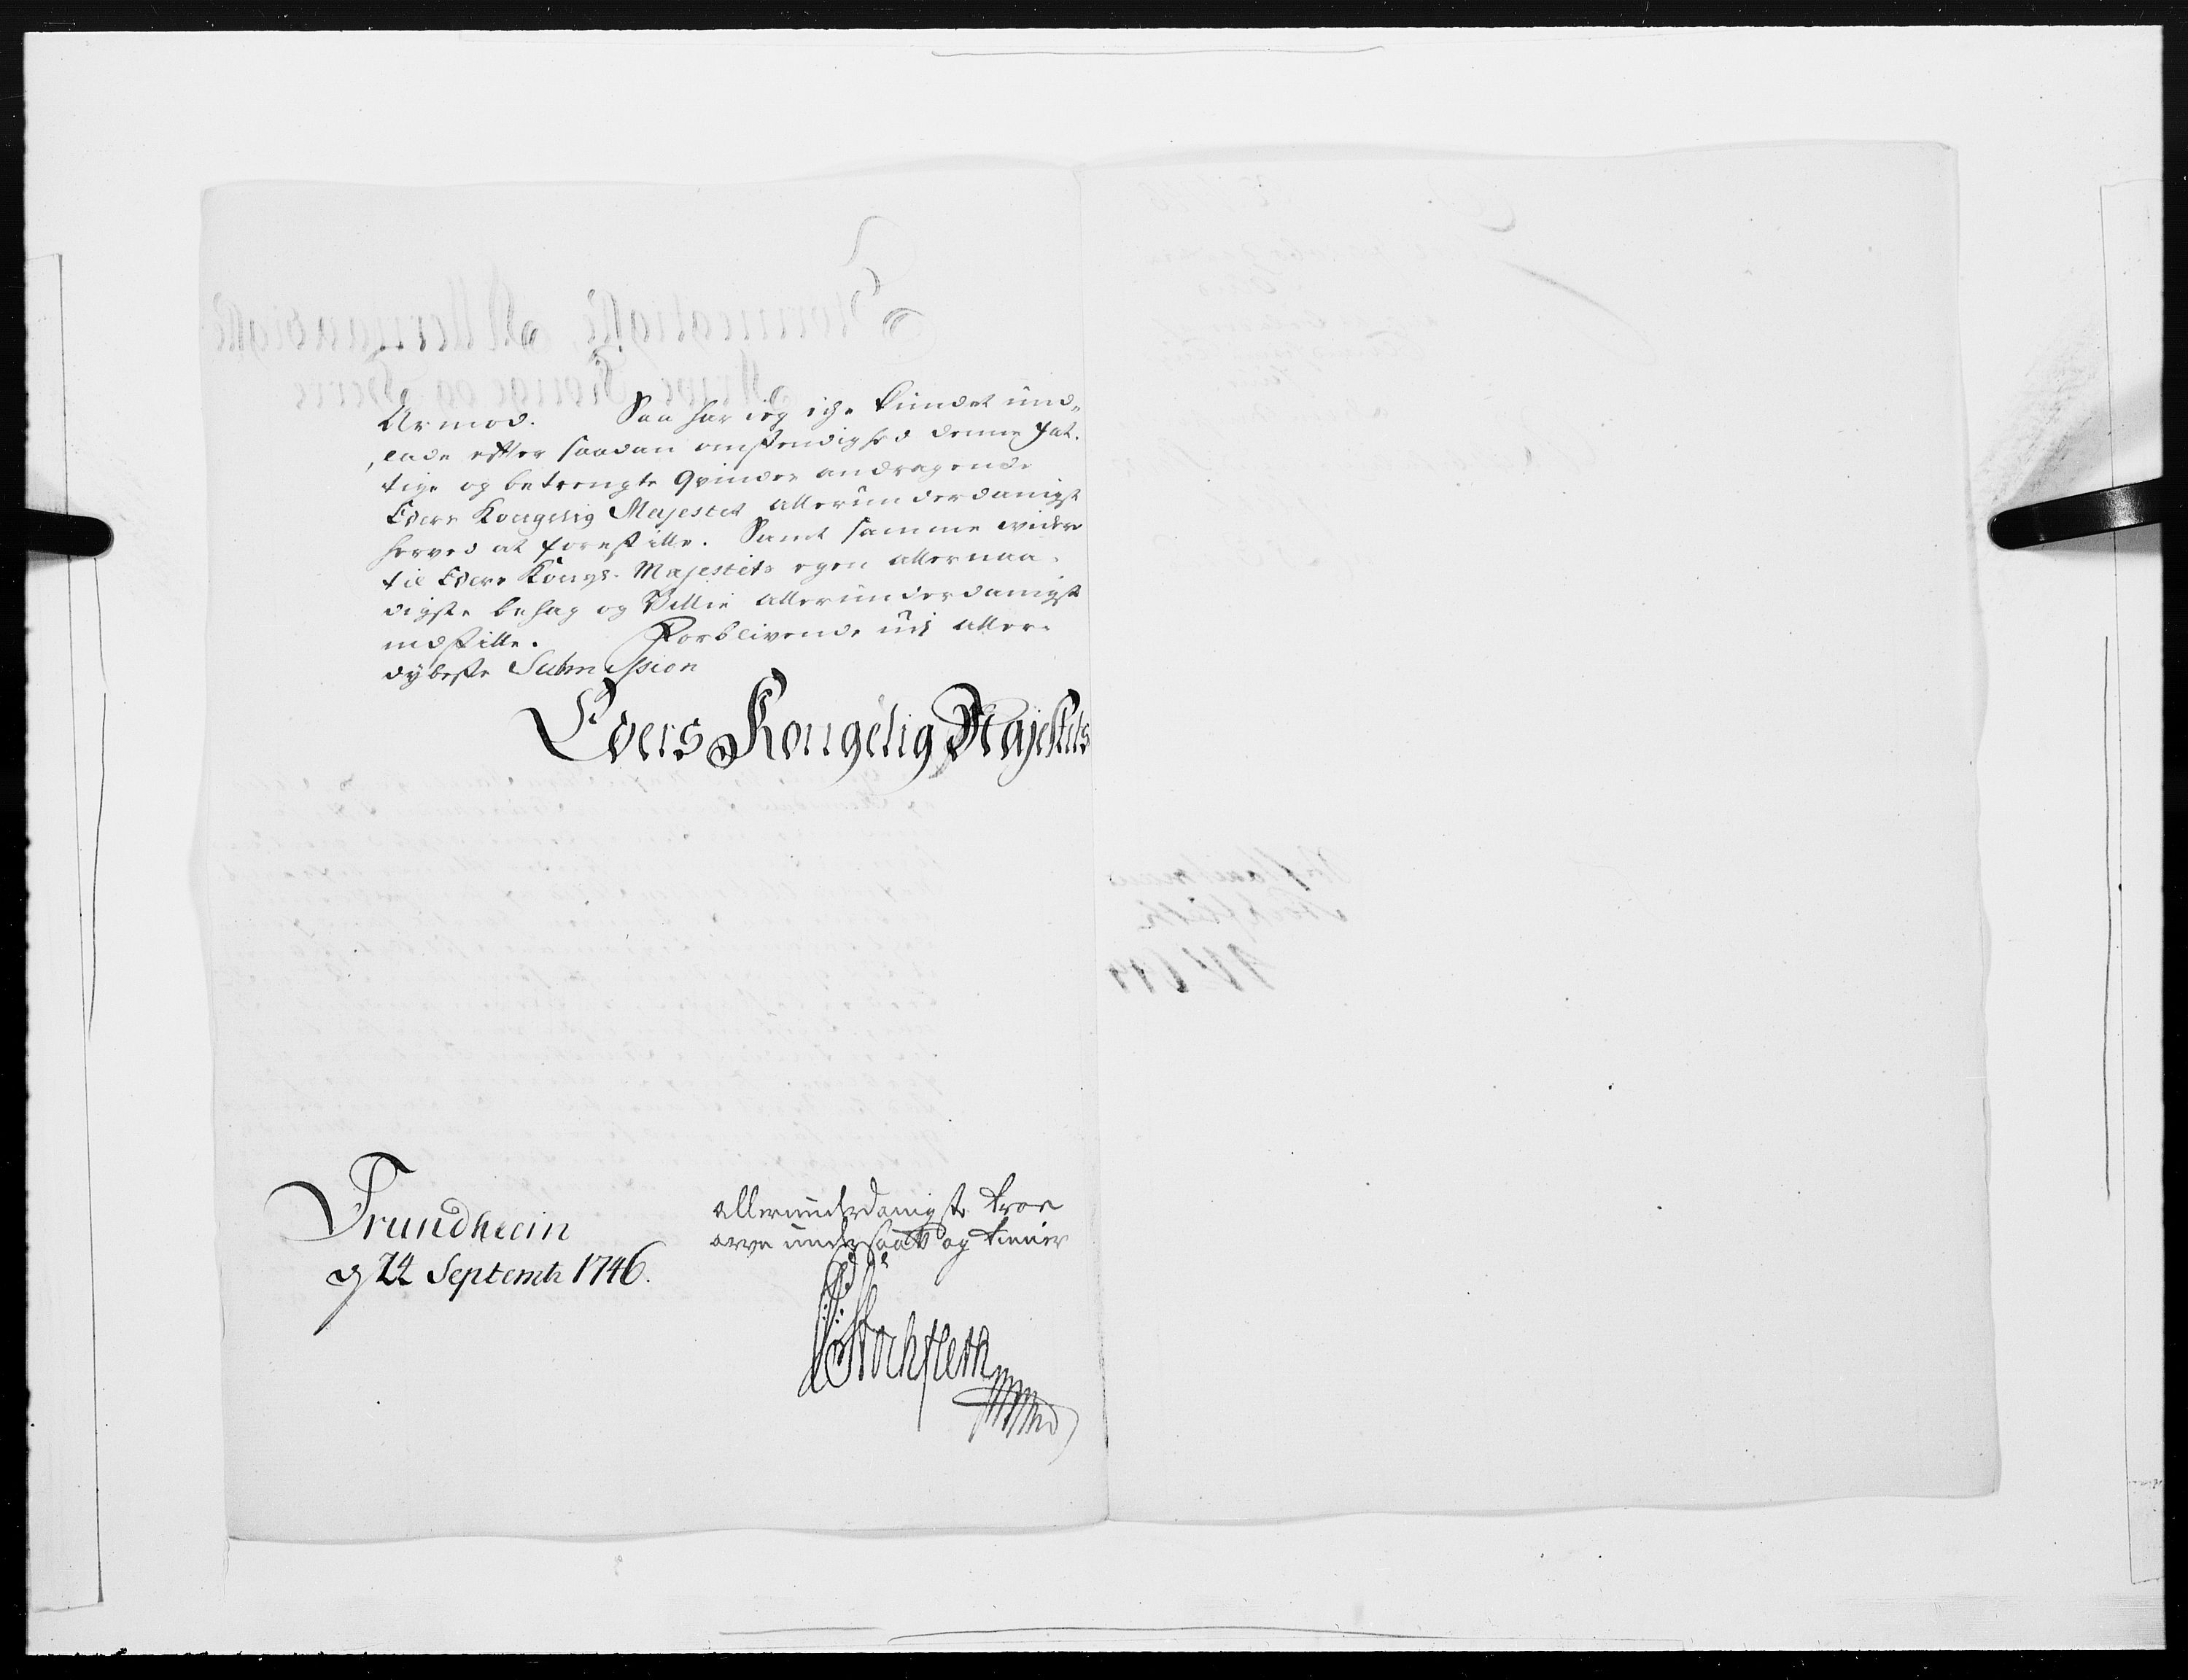 Armod. Saa har ieg iche kundet und„
„lade efter saadan omstendighed denne fat„
tige og betrengte Qvindes andragende
Eders Kongelig Majestet allerunderdanigst
herved at forestille. Samt samme videre
til Eders Kongs. Majestets egen allernaa„
digste behag og Villie allerunderdanigst
indstille. Forblivende udj aller„
dybeste Submission
Eders Kongelig Majestets
Trundheim
d 24 Septembr 1746.
allerunderdanigste troe
arve undersaat og tienner
Stockfleth